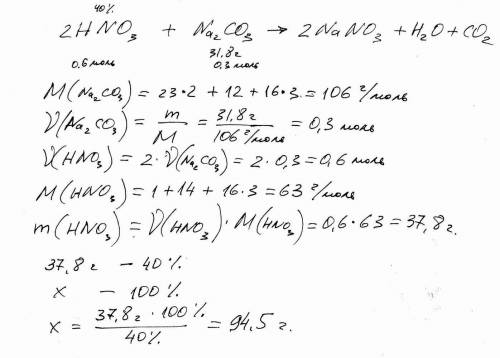 40%
2HNO₃ + Na₂CO₃ → 2NaNO₃ + H₂O + CO₂
31,8г
0,6 моль 0,3 моль
M(Na₂CO₃) = 23•2 + 12 + 16•3 = 106 г/моль
ν(Na₂CO₃) = m/M = 31,8г/106 г/моль = 0,3 моль
ν(HNO₃) = 2•ν(Na₂CO₃) = 2•0,3 = 0,6 моль
M(HNO₃) = 1 + 14 + 16•3 = 63 г/моль
m(HNO₃) = ν(HNO₃)•M(HNO₃) = 0,6•63 = 37,8 г.
37,8 г – 40%
x – 100%
x = 37,8г•100%/40% = 94,5 г.